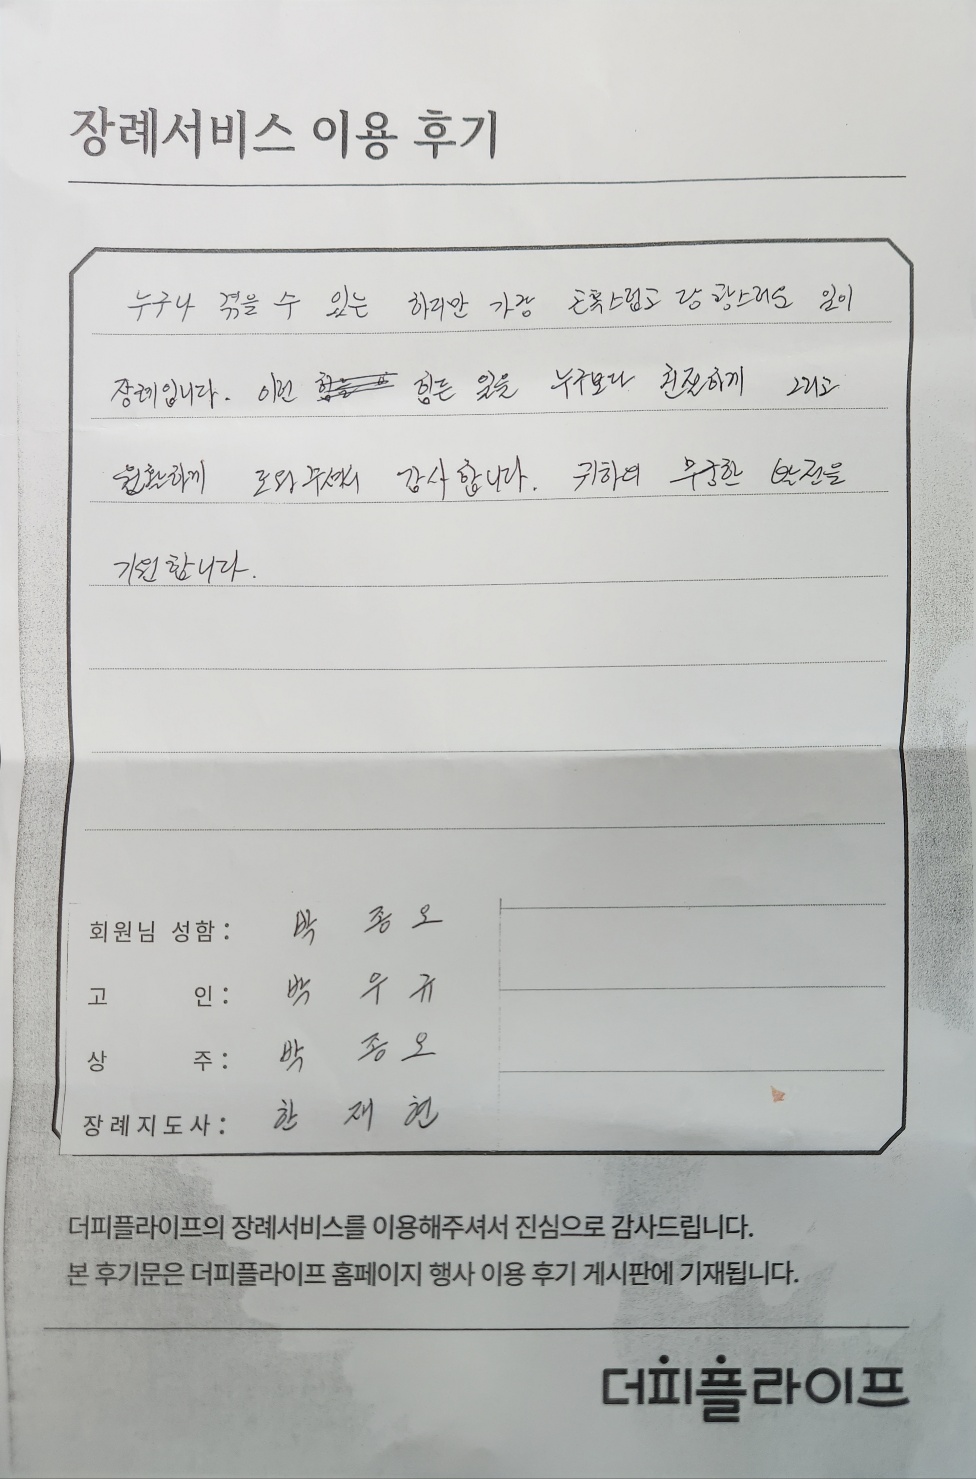 장례서비스 이용 후기
누구나 겪을 수 있는 하지만 가장 혼란스럽고 당황스러운 일이
장례입니다. 이런 힘든 일을 누구보다 친절하게 그리고
원활하게 도와주셔서 감사합니다. 귀하의 무궁한 발전을
기원합니다.
회원님 성함: 박종오
고 인: 박우규
상 주: 박종오
장례지도사: 한재현
더피플라이프의 장례서비스를 이용해주셔서 진심으로 감사드립니다.
본 후기문은 더피플라이프 홈페이지 행사 이용 후기 게시판에 기재됩니다.
더피플라이프